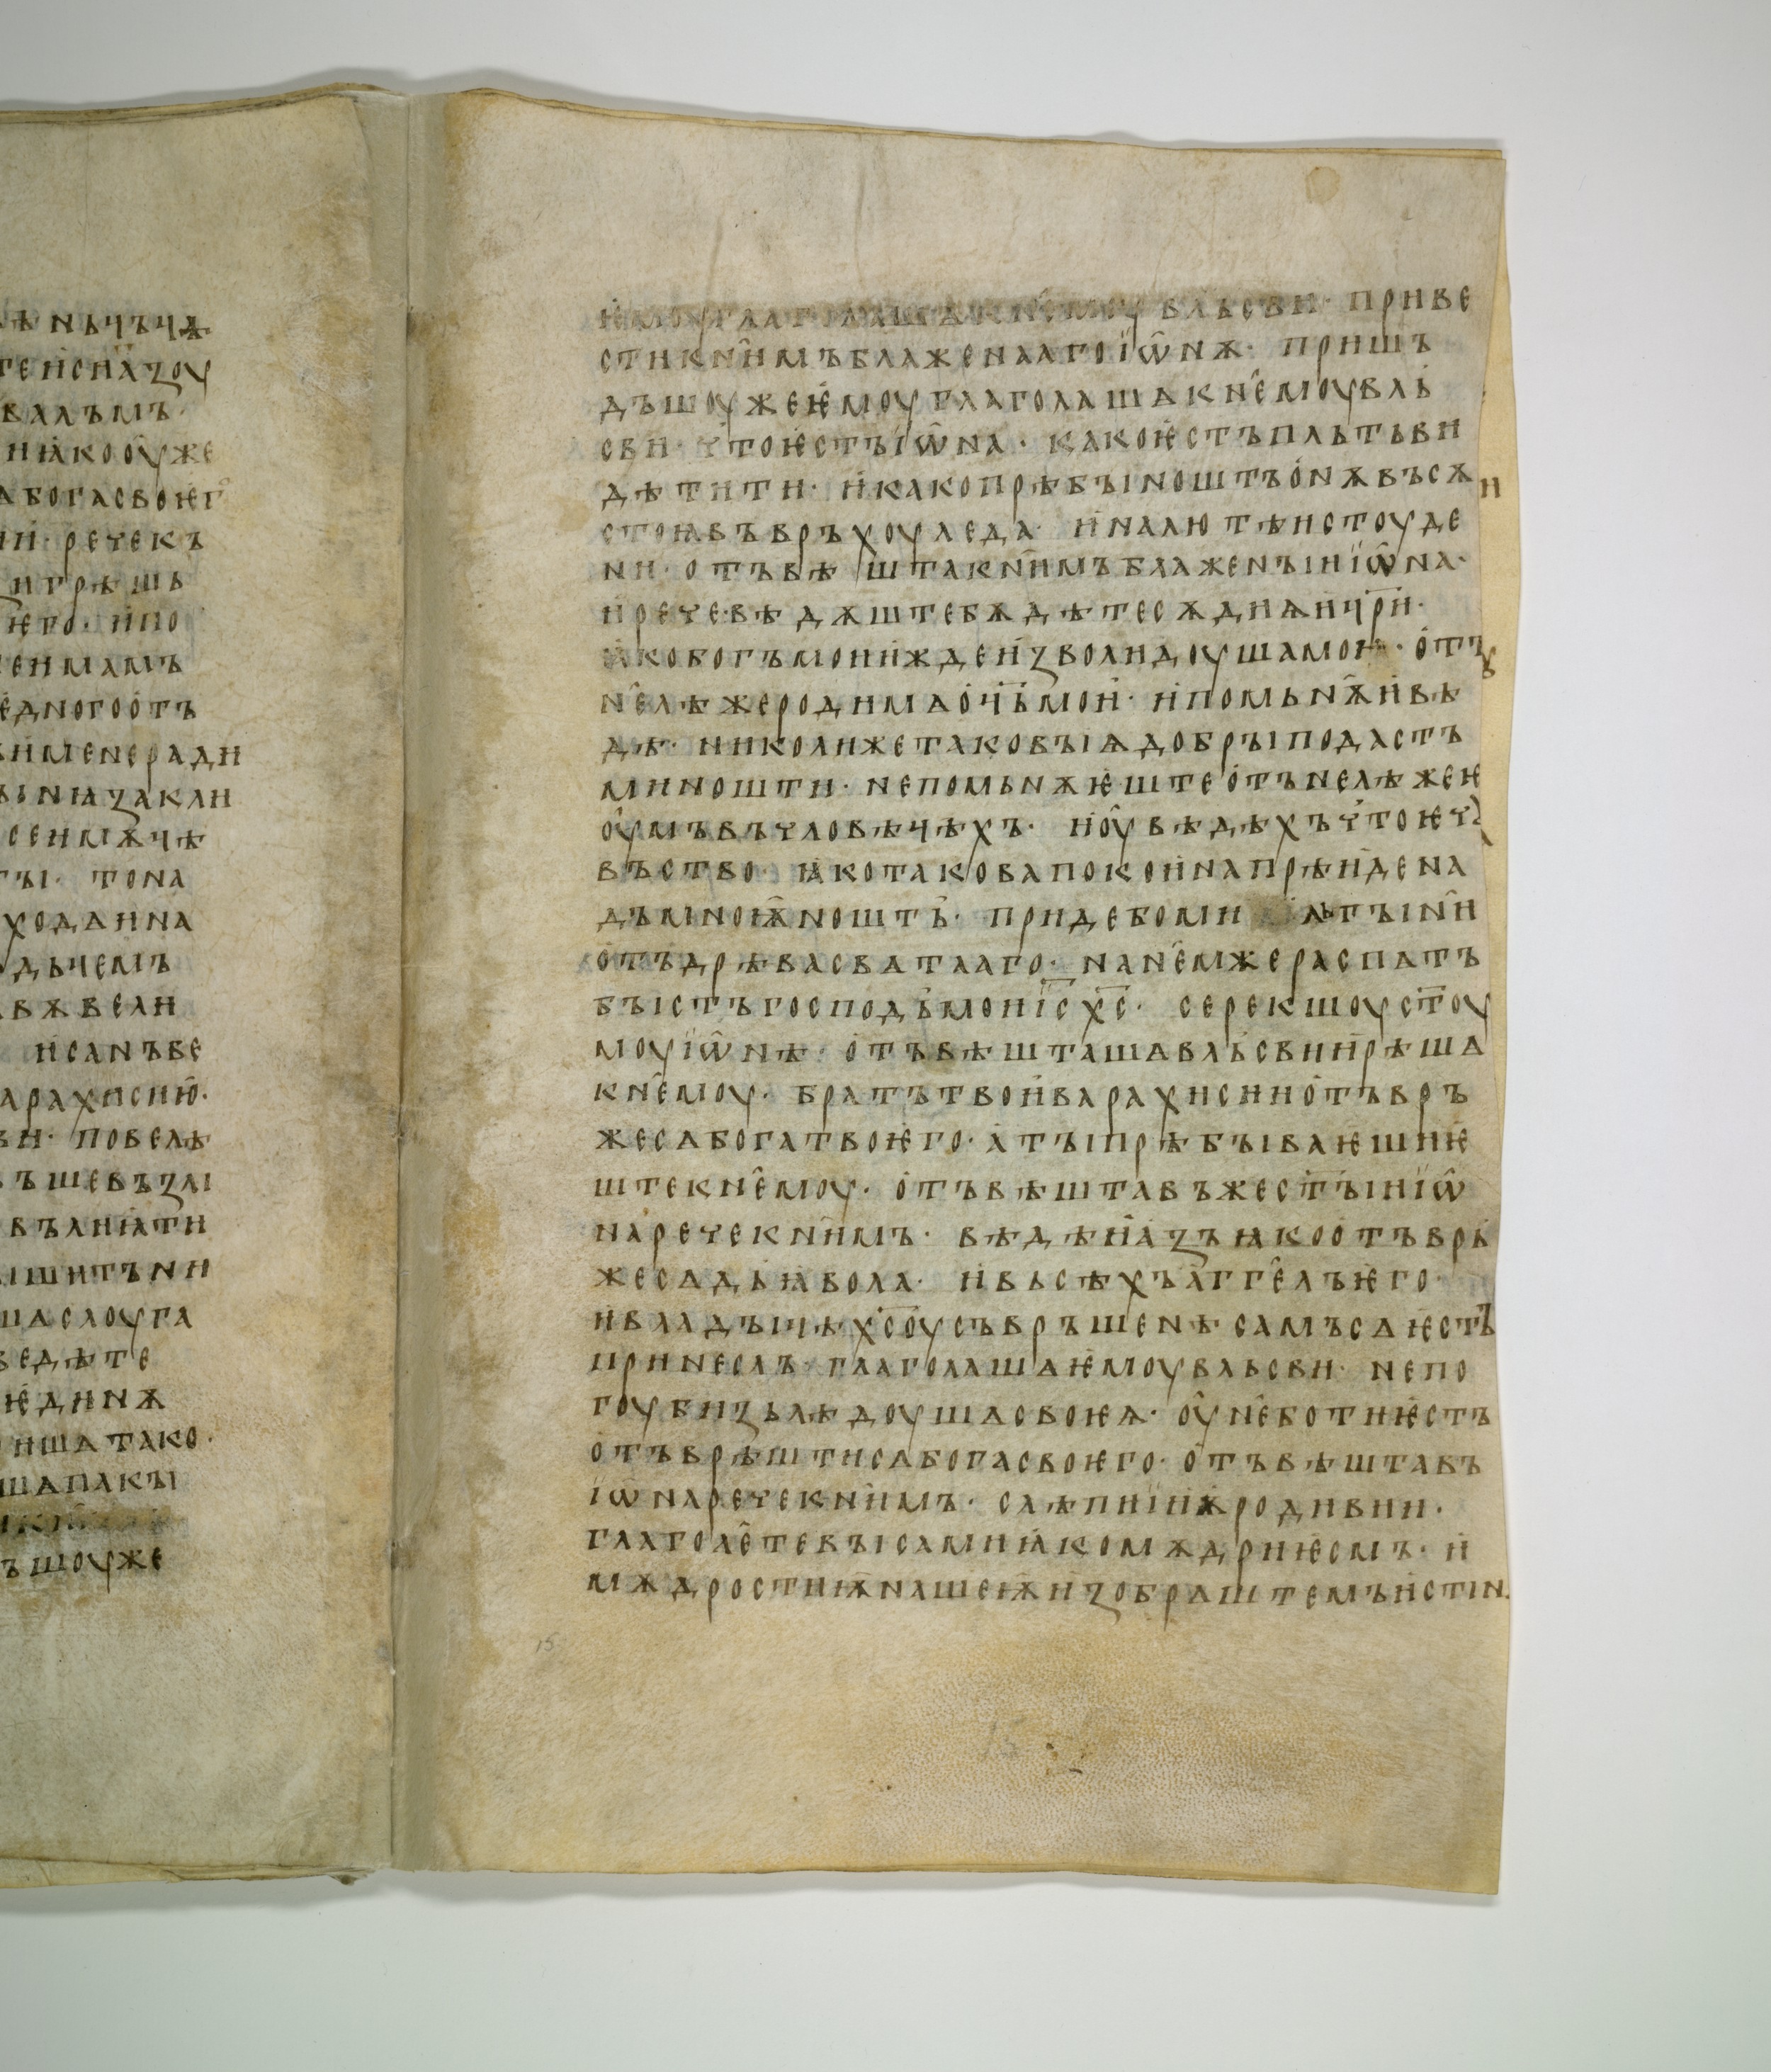 ѣ нъічъ чѧ
те и сиꙗ зоу
валъмъ·
и ꙗко оуже
а бога своѥго
ии· рече къ
и грѣшь
ѥго· и по
еимамъ
едного отъ
имене ради
ънꙗ закли
сеи мѫчѣ
тъі· то на
хода и на
дьчемъ
вѫ вели
и санъ ве
арахисию·
ви· повелѣ
ъше възлі
въ лиꙗти
ішитъ ни
ша слоуга
ведѣте
ѥдинѫ
иша тако·
ша пакъі
ки
ъшоу же
ѥмоу глаголаша к н҄емоу влъсви· приве
сти к н҄имъ блаженааго іѡ҄нѫ· пришъ
дъшоу же ѥмоу глаголаша к н҄емоу влъ
сви· что ѥстъ іѡ҄на· како ѥстъ плътьви
дѣтити· и како прѣбъі ношть онѫ въсѫ
стоꙗ въ връхоу леда· и на лютѣи стоуде
ни· отъвѣшта к н҄имъ блаженъіи іѡ҄на·
и рече вѣдѫште бѫдѣте сѫдиѧ и чр҃и·
ꙗко богъ мои ижде изволи доуша моꙗ· отъ
н҄елѣже родима оч҃ь мои· и помьнѭ и вѣ
дѣ· николиже таковъіѧ добръі подастъ
ми ношти· не помьнѫ ѥште отъ нелѣже ѥ
оумъ въ чловѣчѣхъ· и оувѣдѣхъ что ѥ чꙋ
въство· ꙗко такова покои на прѣиде на
дъ мноѭ ношть· приде бо ми льгъін҄и
отъ дрѣва сватааго· на н҄емже распатъ
бъістъ господь мои іс҃ хс҃· се рекшоу ст҃оу
моу іѡ҄нѣ· отъвѣшташа влъсви и рѣша
к н҄емоу· братъ твои варахисии отъвръ
же са бога твоѥго· а тъі прѣбъіваѥши ѥ
ште к н҄емоу· отъвѣштавъ же ст҃ъіи іѡ҄
на рече к н҄имъ· вѣдѣ и азъ ꙗко отъврь
же са дьꙗвола· и вьсѣхъ аггелъ ѥго·
и владъіцѣ хс҃оу съвръшенѣ самъ са ѥстъ
принеслъ· глаголаша ѥмоу влъсви· не по
гоуби зълѣ доуша своѥѧ· оун҄е бо ти ѥстъ
отъврѣшти са бога своѥго· отъвѣштавъ
іѡ҄на рече к н҄имъ· слѣпии и нѫродивии·
глагол҄ете въі сами ꙗко мѫдри ѥсмъ· и
мѫдростиѭ нашеѭ изобраштемъ истін
15